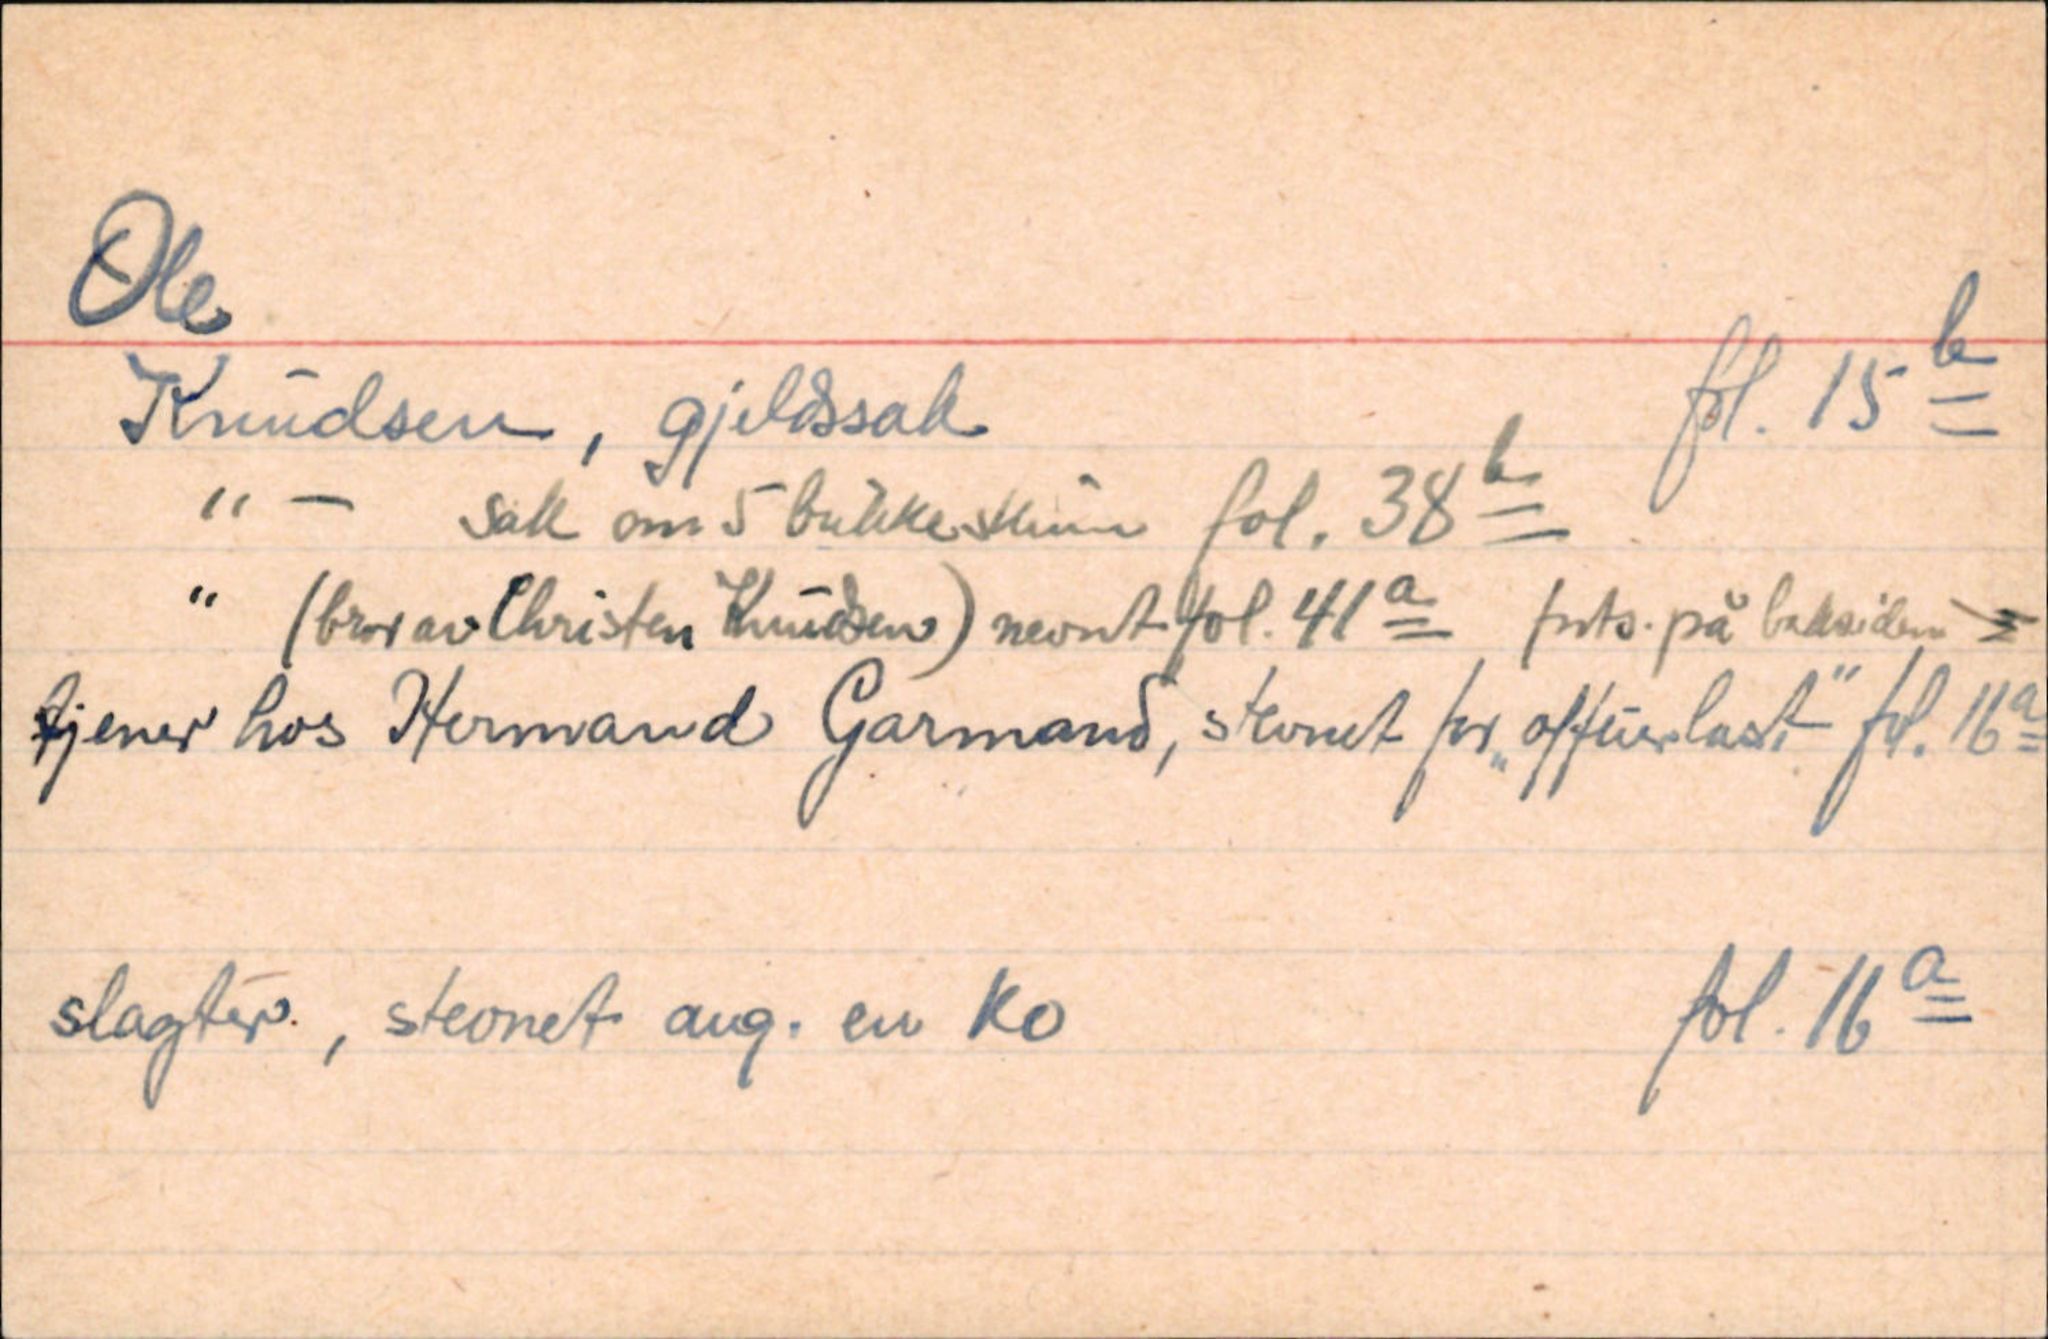 Ole
Knudsen, gjeldssak fol. 15 b
" — sak om 5 bukkeskinn fol. 38 b
" (bror av Christen Knudsen) nevnt fol. 41 a forts. på baksiden
tjener hos Hermand Garmand, stevnet for „offuerlast" fol. 16 a
slagter, stevnet ang. en ko fol. 16 a